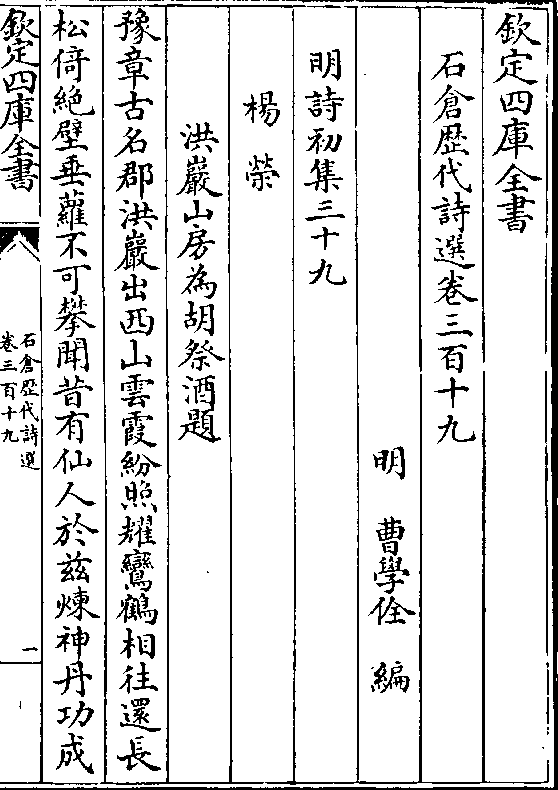 欽定四庫全書
石倉歴代詩選卷三百十九
明 曹學佺 編
明詩初集三十九
楊榮
洪巖山房為胡祭酒題
豫章古名郡洪巖出西山雲霞紛照耀鸞鶴相往還長
松倚絶壁垂蘿不可攀聞昔有仙人於兹煉神丹功成
欽定四庫全書
石倉歴代詩選
卷三百十九
一